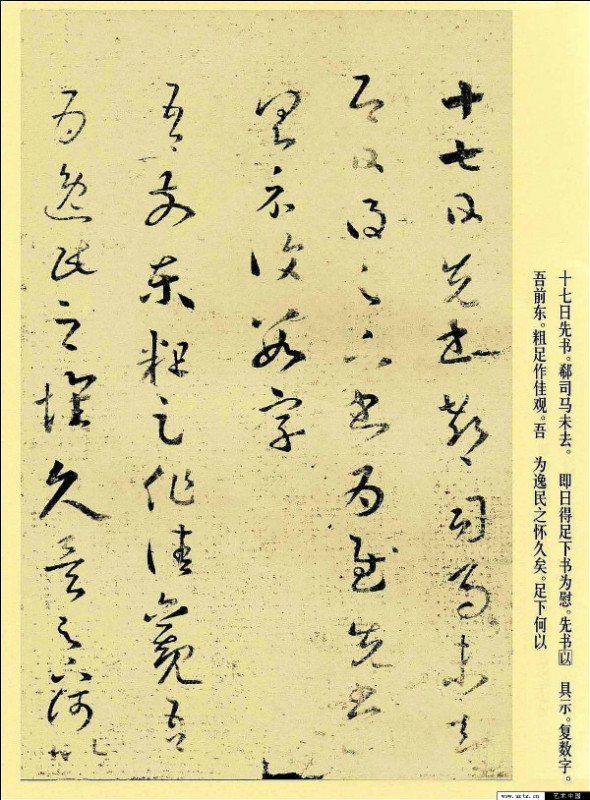 十七日先书。郗司马未去。 即日得足下书为慰。先书以 具示。复数字。
吾前东。粗足作佳观。吾 为逸民之怀久矣。足下何以
十七日先書郗司馬未去
即日得足下書為慰先書
具示復數字
吾前東粗足作佳觀吾
為逸民之懷久矣足下何以
www.artx.cn 艺术中国